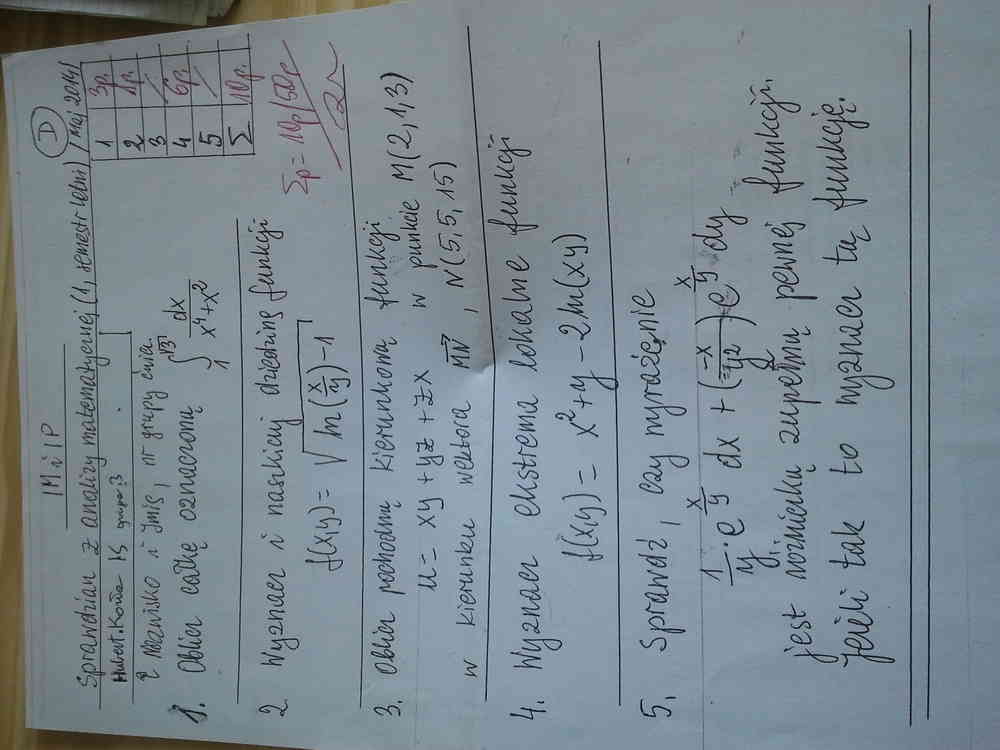 IM i IP
D
Sprawdzian z analizy matematycznej (1, semestr letni) / Maj 2014/
Hubert. Kowa IS grupa: 3
Nazwisko i Imię, nr grupy ćwicz.
1 3p.
2 1p.
3 /
4 6p.
5 /
Σ 10p.
1. Oblicz całkę oznaczoną ∫₁^√3 dx/(x⁴+x²)
2 Wyznacz i naszkicuj dziedzinę funkcji
f(x,y) = √(ln(x/y)-1)
Σp = 10p/50p
3. Oblicz pochodną kierunkową funkcji
u = xy + yz + zx w punkcie M(2,1,3)
w kierunku wektora MN→, N(5,5,15)
4. Wyznacz ekstrema lokalne funkcji
f(x,y) = x²+y-2ln(xy)
5. Sprawdź, czy wyrażenie
1/y · e^(x/y) dx + (-x/y²) e^(x/y) dy
jest różniczką zupełną pewnej funkcji.
Jeżeli tak to wyznacz tą funkcję.